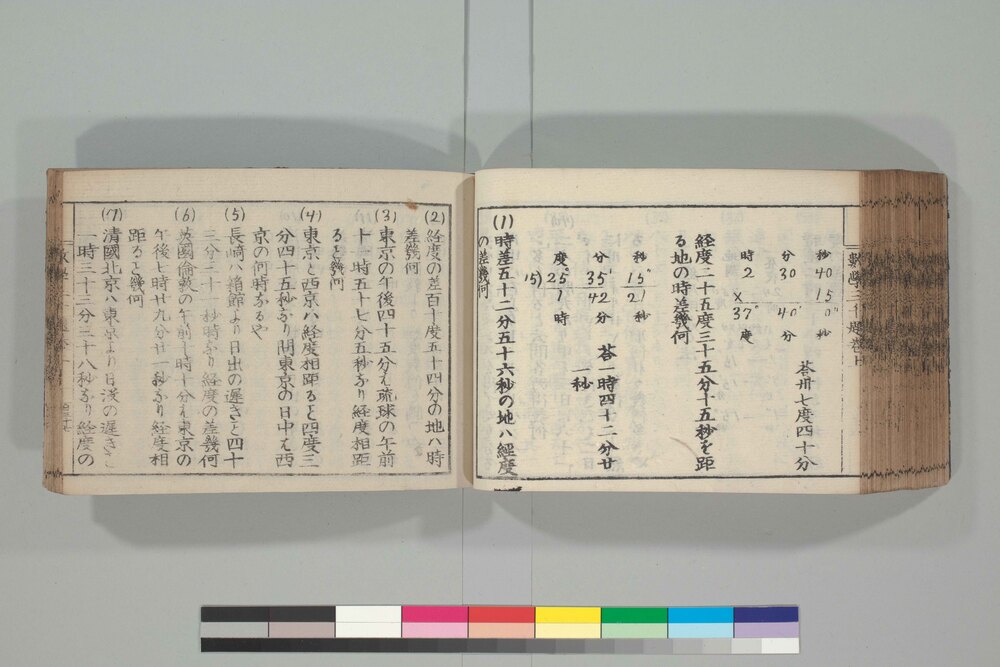 秒 分 時
40 30 2
15 ×
0" 40' 37°
秒 分 度
荅卅七度四十分
経度二十五度三十五分十五秒を距
る地の時差幾何
秒 分 度
15" 35' 25° 15)
21 42 1
秒 分 時
荅一時四十二分廿
一秒
(1) 時差五十二分五十六秒の地ハ経度
の差幾何
(2) 経度の差百十度五十四分の地ハ時
差幾何
(3) 東京の午後四十五分ハ琉球の午前
十一時五十七分五秒なり経度相距
ると幾何
(4) 東京と西京ハ経度相距ると四度三
分四十五秒なり間東京の日中ハ西
京の何時なるや
(5) 長崎ハ箱館より日出の遅きと四十
三分二十一秒時なり経度の差幾何
(6) 英國倫敦の午前十時十分ハ東京の
午後七時廿九分廿一秒なり経度相
距ると幾何
(7) 清國北京ハ東京より日没の遅きと
一時三十三分二十八秒なり経度の